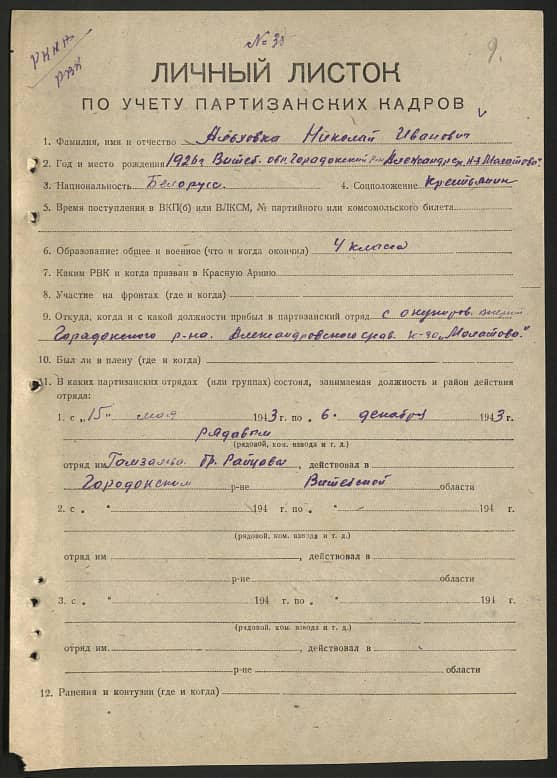 № 30
9.
РККА
РВК
ЛИЧНЫЙ ЛИСТОК
ПО УЧЕТУ ПАРТИЗАНСКИХ КАДРОВ
1. Фамилия, имя и отчество Альховка Николай Иванович
2. Год и место рождения 1926г Витеб. обл. Горадокский р-н Александр с/с к-з Молатова"
3. Национальность Белорусс. 4. Соцположение Крестьянин
5. Время поступления в ВКП(б) или ВЛКСМ, № партийного или комсомольского билета
6. Образование: общее и военное (что и когда окончил) 4 класса
7. Каким РВК и когда призван в Красную Армию
8. Участие на фронтах (где и когда)
9. Откуда, когда и с какой должности прибыл в партизанский отряд с окупиров.
Горадокского р-на. Александровского к-за „Молатова"
10. Был ли в плену (где и когда)
11. В каких партизанских отрядах (или группах) состоял, занимаемая должность и район действия
отряда:
1. с „15" мая 1943 г. по „ 6. декабря 1943 г.
рядавым
(рядовой, ком. взвода и т. д.)
отряд им бр. Райцова, действовал в
Городокском р-не Витебской области
2. с „ " 194 г. по „ " 194 г.
(рядовой, ком. взвода и т. д.)
отряд им , действовал в
р-не области
3. с „ " 194 г. по „ " 194 г.
(рядовой, ком. взвода и т. д.)
отряд им , действовал в
р-не области
12. Ранения и контузии (где и когда)